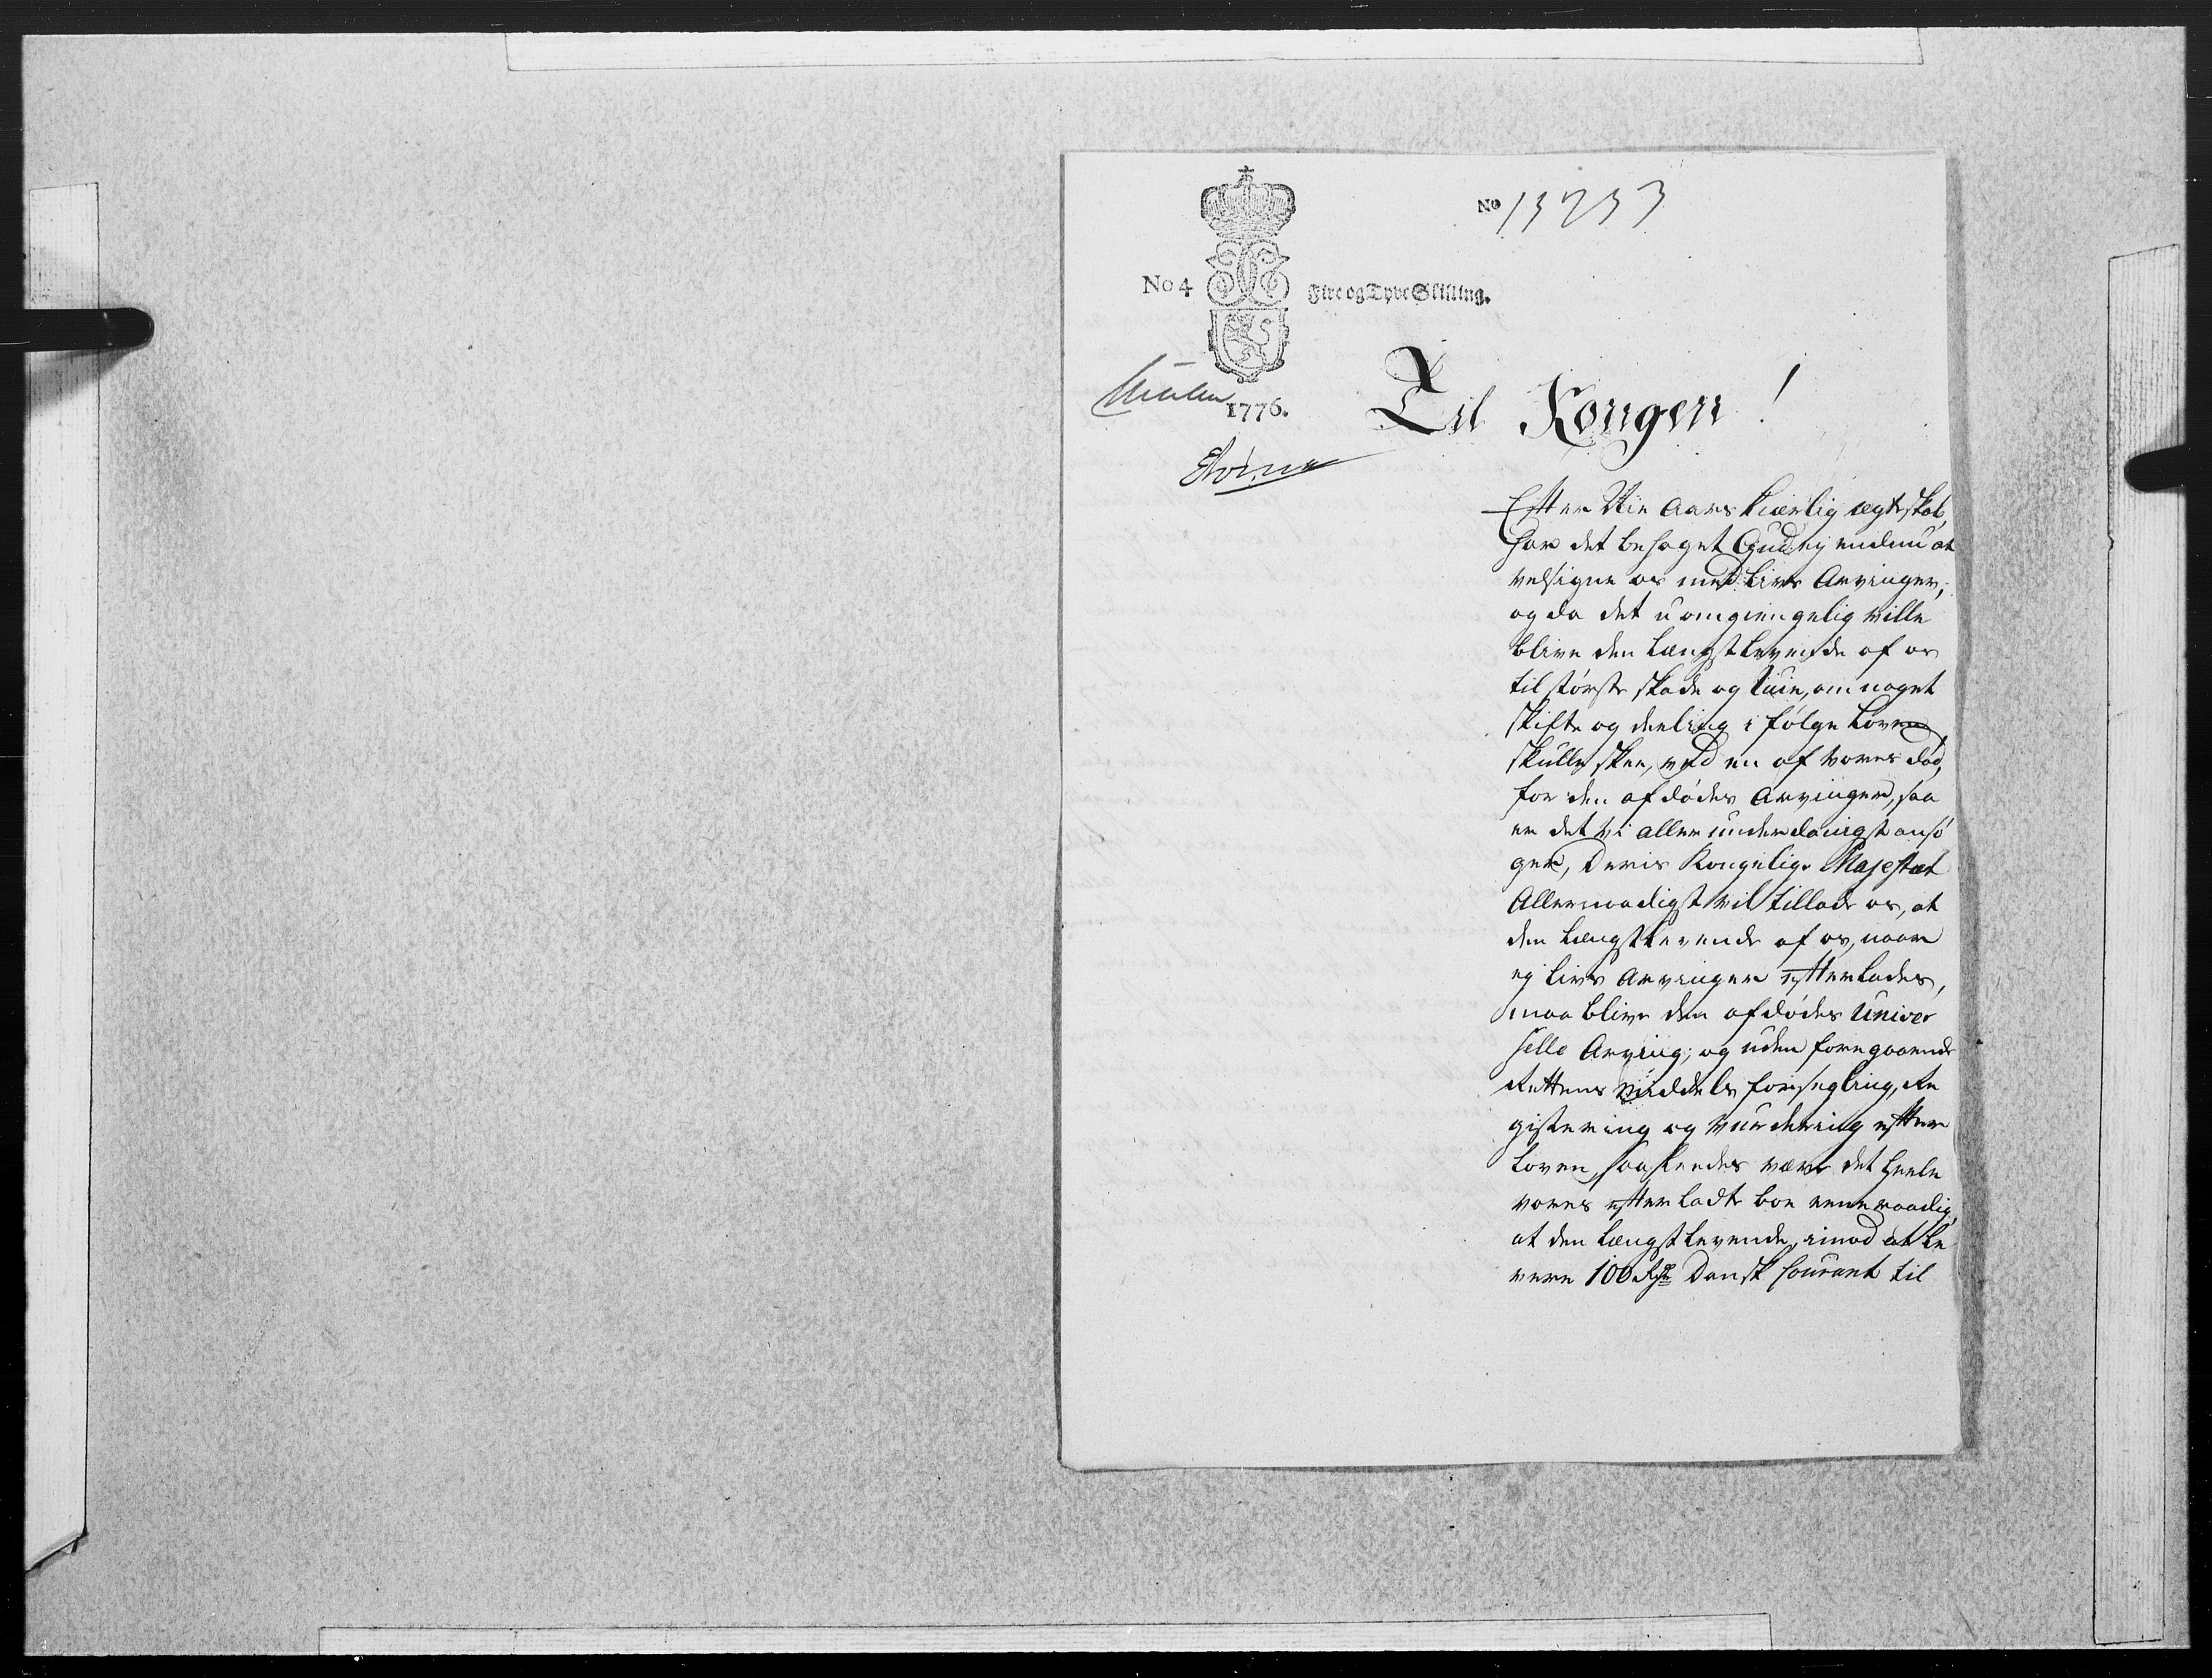 No 13253
No 4
Fire og Tyve Skilling.
1776.
Til Kongen!
Efter Nie Aars kierlig ægteskab,
har det behaget Gud ej endnu at
velsigne os med Livs Arvinger,
og da det uomgiengelig ville
blive den Længstlevende af os
til største skade og Ruin, om noget
skifte og deeling i følge Loven
skulle skee, ved en af vores død,
for den afdødes Arvinger, saa
er det Vi allerunderdanigst ansø
ger, Deris Kongelige Majestæt
Allernaadigst vil tillade os, at
den længstlevende af os, naar
ej Livs Arvinger efterlades,
maa blive den afdødes Univer
selle Arving; og uden foregaaende
Rettens Middels forseigling, Re
gistering og Vurdering efter
Loven, saaleedes være det heele
vores efterladte boe eene raadig,
at den Længstlevende, imod at le
vere 100 Rdr Dansk Courant til